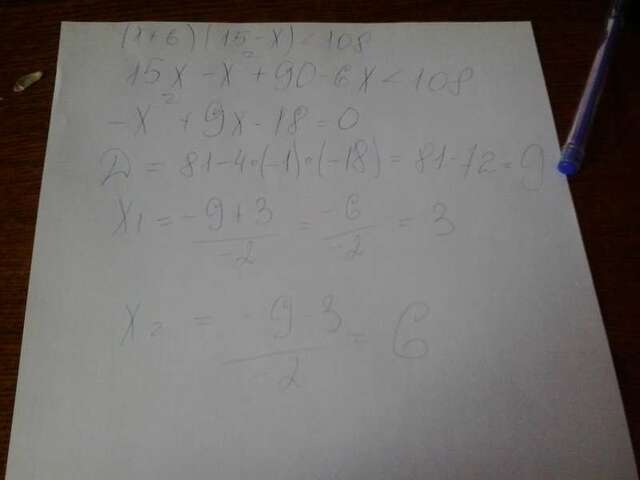 (x+6)(15-x)<108
15x-x²+90-6x<108
-x²+9x-18=0
D=81-4•(-1)•(-18)=81-72=9
x₁=\frac{-9+3}{-2}=\frac{-6}{-2}=3
x₂=\frac{-9-3}{-2}=6